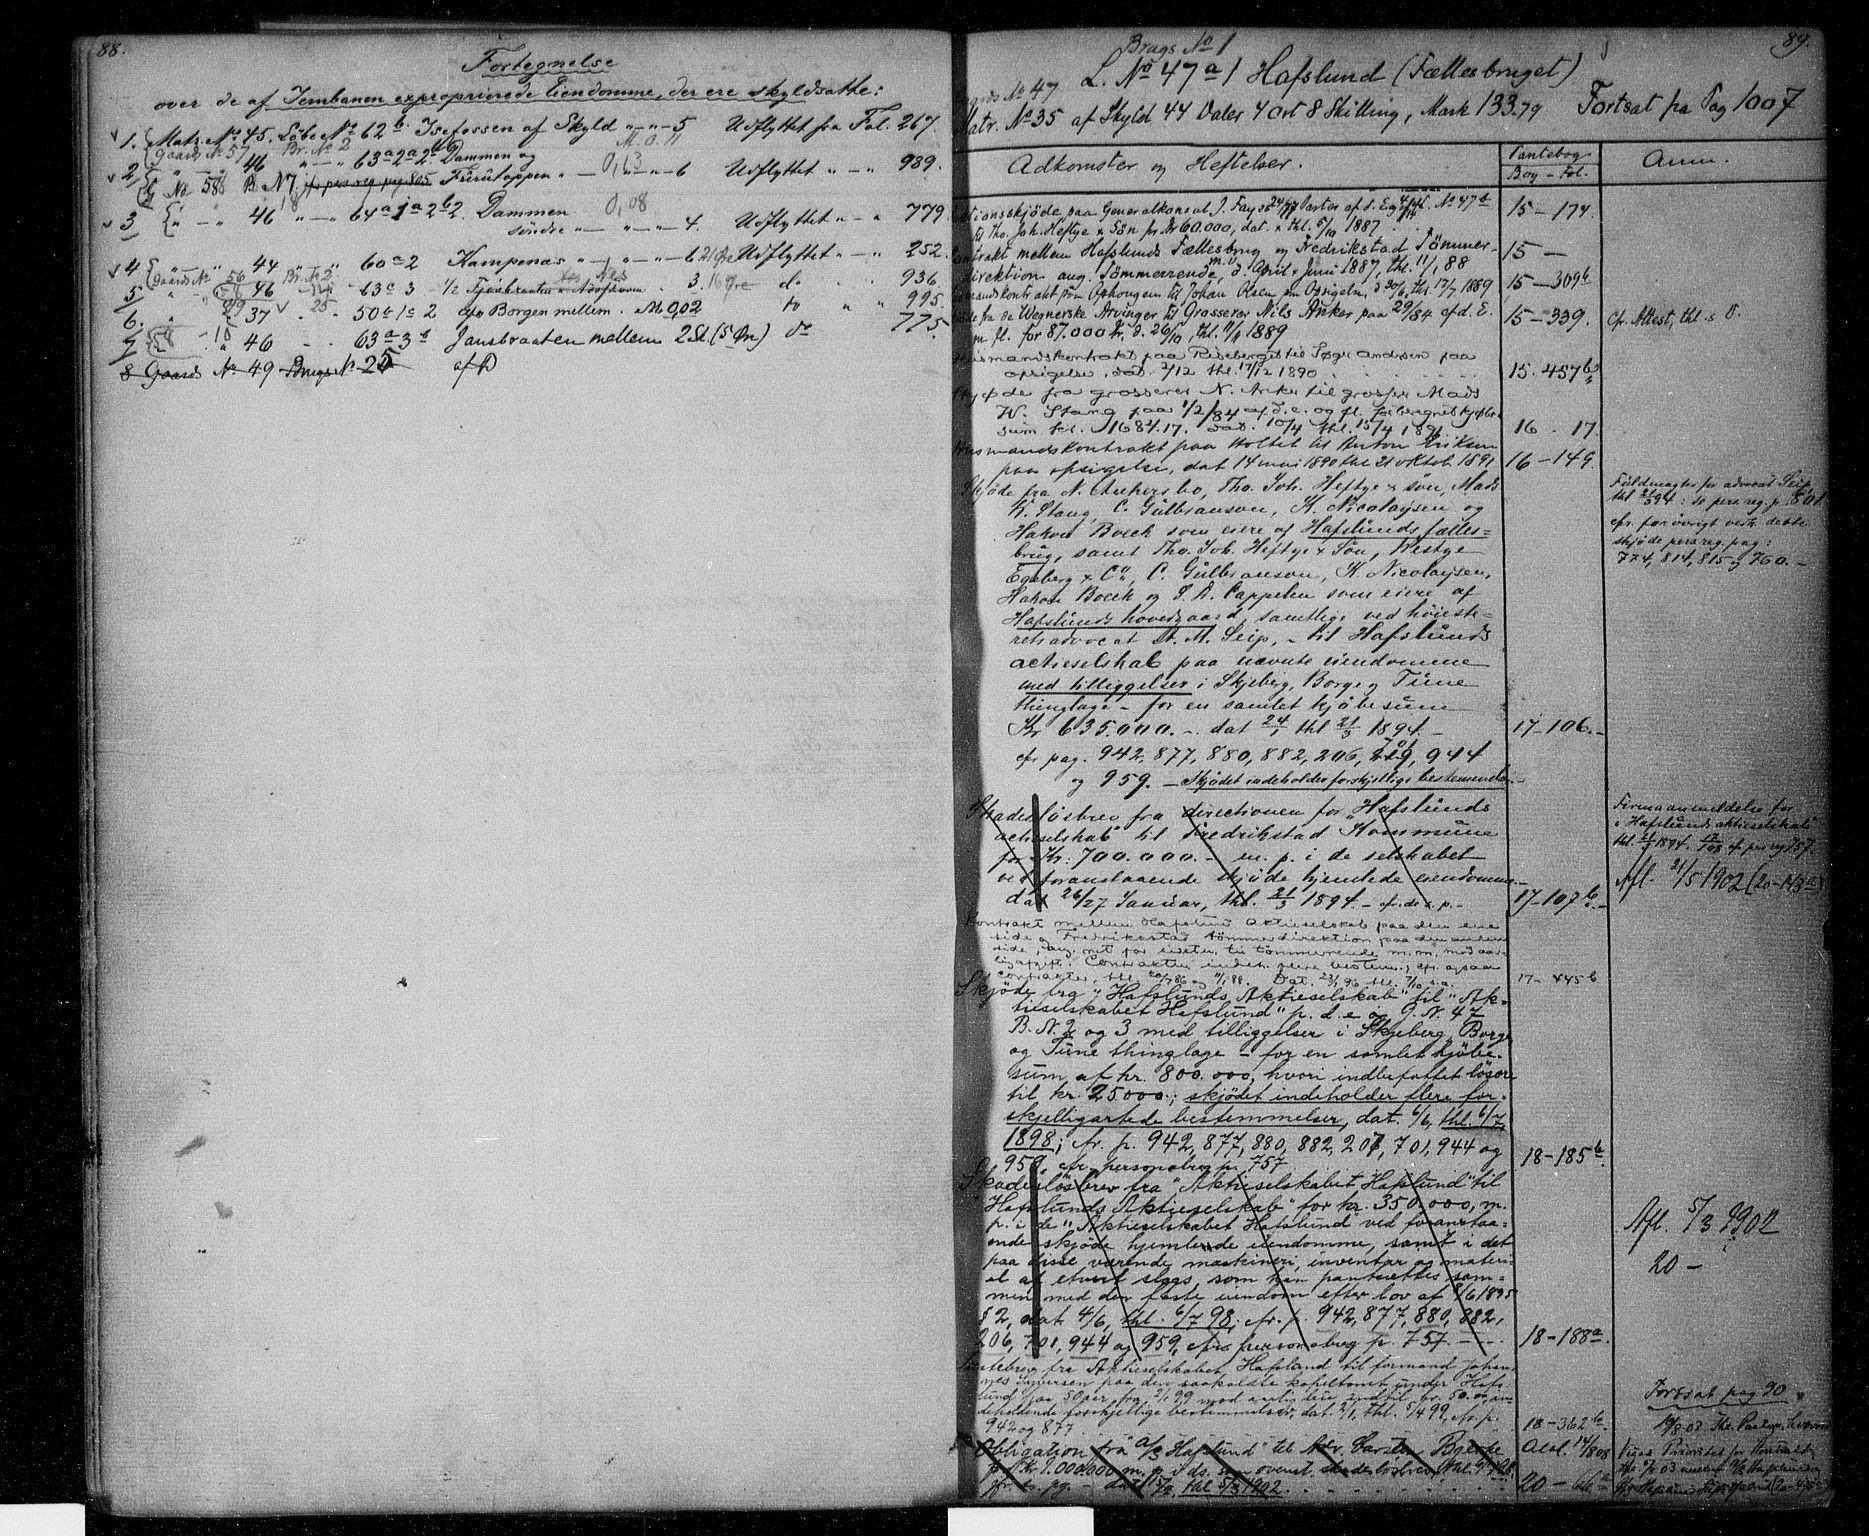 88.
Fortegnelse
over de af Jernbanen exproprierede Eiendomme, der ere skyldsatte:
1. Matr. No 45. Löbe No 62 b. Isefossen af Skyld " - " - 5 Udflyttet fra Fol. 267.
Gaards No 57 Br. No 2
2. " - " 46 " - " 63 a 2 a 2 Dammen og 0,63
G. No 58 B. N 7 Furutoppen " - " - " - 6 Udflyttet " - " 989.
3 " - " 46 " - " 64 a 1 a 2 b 2. Dammen 0,08
söndre " - " - " 4. Udflyttet " - " 779.
4 " - " 44 " 60 a 2 Kampenæs " - " - " 6 Udflyttet " - " 252.
5 " 46 63 a 3 - 1/2 3. do 936.
6. " 37 50 a 1 a 2 Borgen mellem. M 0,02 do " " 995.
7 " 46 - - 63 a 3 b Jansbraaten mellem 2 Sk (5 Öre) do 775.
8 Gaards No 49 Brugs No 25 af D
89.
Brugs No 1
L. No 47 a 1 Hafslund (Fællesbruget)
Gaards No 47
Matr. No 35 af Skyld 44 Daler 4 Ort 8 Skilling, Mark 133.79 Fortsat fra Pag 1007
Adkomster og Heftelser. Pantebog Anm.
Bog - Fol.
Auktionsskjöde paa Generalkonsul J. Fayes Parter af d. E No 47 b 15 - 174
til Tho. Joh. Heftye & Sön for Kr 60.000, dat. & thl. 5/10 1887
Kontrakt mellem Hafslunds Fællesbrug og Fredrikstad Tömmer-
direktion ang. Tömmerrende, d. April & Juni 1887, thl. 11/1 88 15 -
Husmandskontrakt paa Ophougen til Johan Olsen paa Opsigelse, d. 20/6, thl. 17/7 1889 15 - 309 b
Skjöde fra de Wegnerske Arvinger til Grosserer Nils Anker paa 29/84 af d. E. 15 - 339. cfr. Attest, thl. s. D.
m. fl. for 87.000 Kr., d. 26/10, thl. 11/11 1889
Husmandskontrakt paa til Andersen paa
opsigelse, dat. 2/12 thl. 17/12 1890 15. 457 b
Skjøde fra grosserer N. Anker til grosserer Mads
W. Stang paa 1/2/84 af d. e. og fl. for beregnet kjøbe-
sum kr. 1684.17. dat. 10/4 thl. 15/4 1891 16 - 17.
Husmandskontrakt paa Holtet til Anton Eriksen
paa opsigelse, dat 14 mai 1890 thl 21 oktob. 1891 16 - 149.
Skjöde fra N. Ankers bo, Tho. Joh. Heftye & sön, Mads Fuldmagter for advocat Seip,
W. Stang, C. Gulbranson, K. Nicolaysen og thl. 21/3 94: se pers. reg. p. 801
Hakon Boeck som eiere af Hafslunds fælles- cfr. forövrigt vedr. dette
brug, samt Tho. Joh. Heftye & Sön, Westye skjöde pers. reg. pag:
Egeberg & Co, C. Gulbranson, K. Nicolaysen, 774, 814, 815 og 760. -
Hakon Boeck og S. D. Cappelen som eiere af
Hafslunds hovedgaard, samtlige ved höieste-
retsadvocat St. M. Seip, - til Hafslunds
actieselskab paa nævnte eiendomme
med tilliggelser i Skjeberg, Borge og Tune
thinglage - for en samlet kjöbesum
Kr 635.000. - dat 24/1 thl 21/3 1894. - 17 - 106. -
cfr pag. 942, 877, 880, 882, 206, 701, 944
og 959. - Skjödet indeholder forskjellige bestemmelser. -
Skadeslösbrev fra directionen for "Hafslunds Firmaanmeldelse for
actieselskab" til Fredrikstad Kommune "Hafslunds aktieselskab"
for Kr: 700.000. - en. p. i de selskabet
ved foranstaaende skjöde hjemlede eiendomme. - Afl. 21/5 1902 (20 - 143 a)
dat 26/27 Januar, thl. 21/3 1894 - cfr. de s. p. - 17 - 107 b. -
Kontrakt mellem Hafslund Aktieselskab paa den ene
side og Fredrikstad tömmerdirektion paa den anden
side, ang. ret for sidstn. til tömmerrende m. m. mod aar-
lig afgift. Contrakten indeh. flere bestem.; cfr. ogsaa
contrakter, thl. 20/7 86 og 11/1 88. Dat. 23/1 96 thl. 7/10 s. a. 17 - 445 b
Skjöde fra "Hafslunds Aktieselskab" til "Ak-
tieselskabet Hafslund" p. d. e og G. N. 47
B. N. 2 og 3 med tilliggelser i Skjeberg, Borge
og Tune thinglage - for en samlet kjöbe-
sum af kr. 800.000, hvori indbefattet lösöre
til kr. 25000; skjödet indeholder flere for-
skjelligartede bestemmelser, dat. 6/6, thl. 6/7
1898; cfr. p. 942, 877, 880, 882, 207, 701, 944 og 18 - 185 b.
959, cfr. personabog p. 757
Skadeslösbrev fra "Aktieselskabet Hafslund" til
Hafslunds Aktieselskab" for kr. 350.000, m. Afl. 5/3 1902
p. i de "Aktieselskabet Hafslund" ved foranstaa- 20 -
ende skjöde hjemlede eiendomme, samt i det
paa disse værende maskineri, inventar og materi-
el af etvert slags, som kan pantsættes sam-
men med den faste eiendom efter lov af 8/6 1895
§ 2, dat 4/6, thl. 6/7 98, cfr. p. 942, 877, 880, 882,
206, 701, 944 og 959, cfr. personabog p. 757. 18 - 188 a.
Fæstebrev fra Aktieselskabet Hafslund til formand Johan-
nes Syversen paa den saakaldte kapeltomt under Hafs-
lund paa 50 aar fra 2/1 99 mod aarlig leie indtil kr. 50.00, in-
deholdende forskjellige bestemmelser, dat. 2/1, thl. 5/4 99, cfr. p. Fortsat pag 90
942 og 877 18 - 362 b
Obligation fra A/S Hafslund" til Adv. Carsten Aasl. 14/8 08
for Kr 1.000.000 m. p. i ds. som ovenst. skadeslösbrev
cfr. s. pg. - dat 15/2, thl 5/3 1902. 20 -